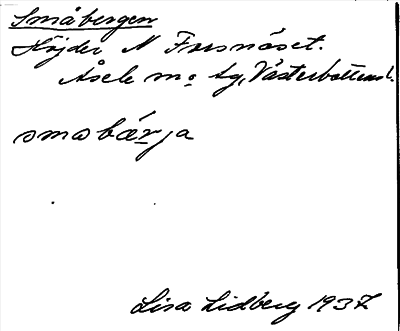 Småbergen
Höjder N Forsnäset.
Åsele m o lg, Västerbottens l.
smɑbærja
Lisa Lidberg 1937